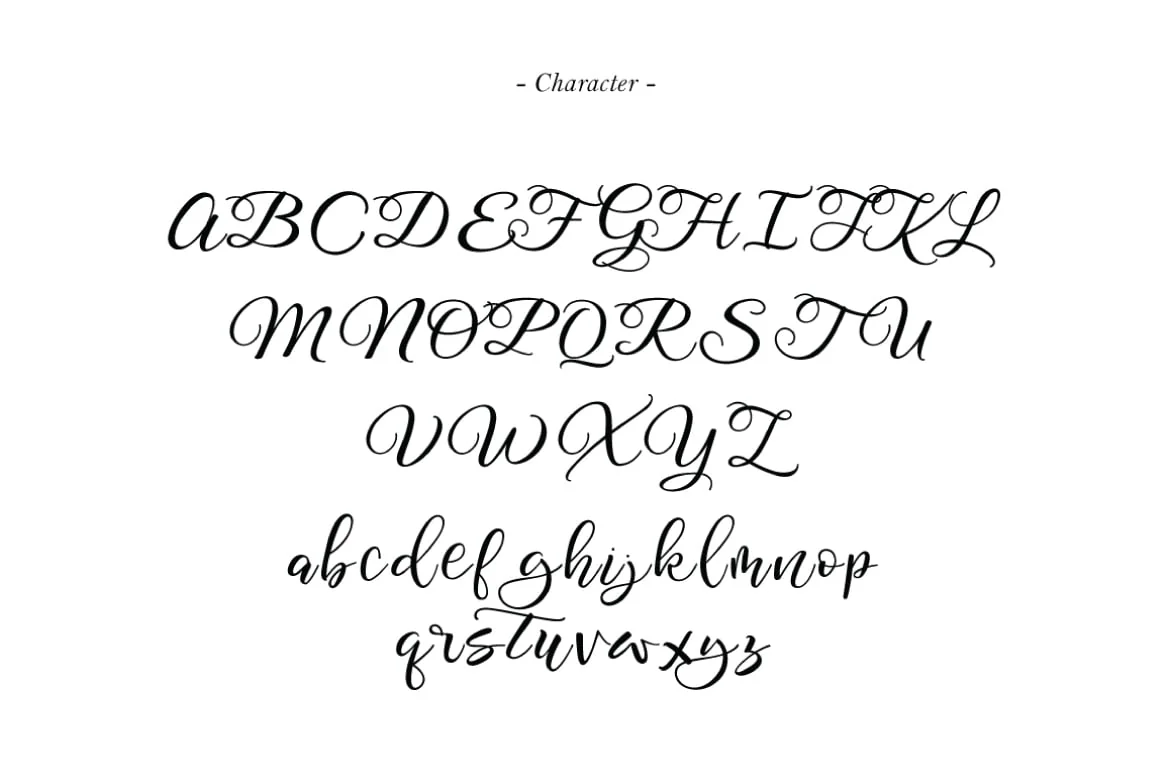 - Character -
ABCDEFGHIJKL
MNOPQRSTU
VWXYZ
abcdefghijklmnop
qrstuvwxyz